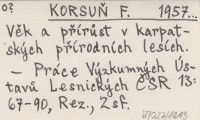 o?
KORSUŇ F. 1957...
Věk a přírůst v karpat-
ských přírodních lesích.
– Práce Výzkumných Ús-
tavů Lesnických ČSR 13:
67-90, Rez., Zsf.